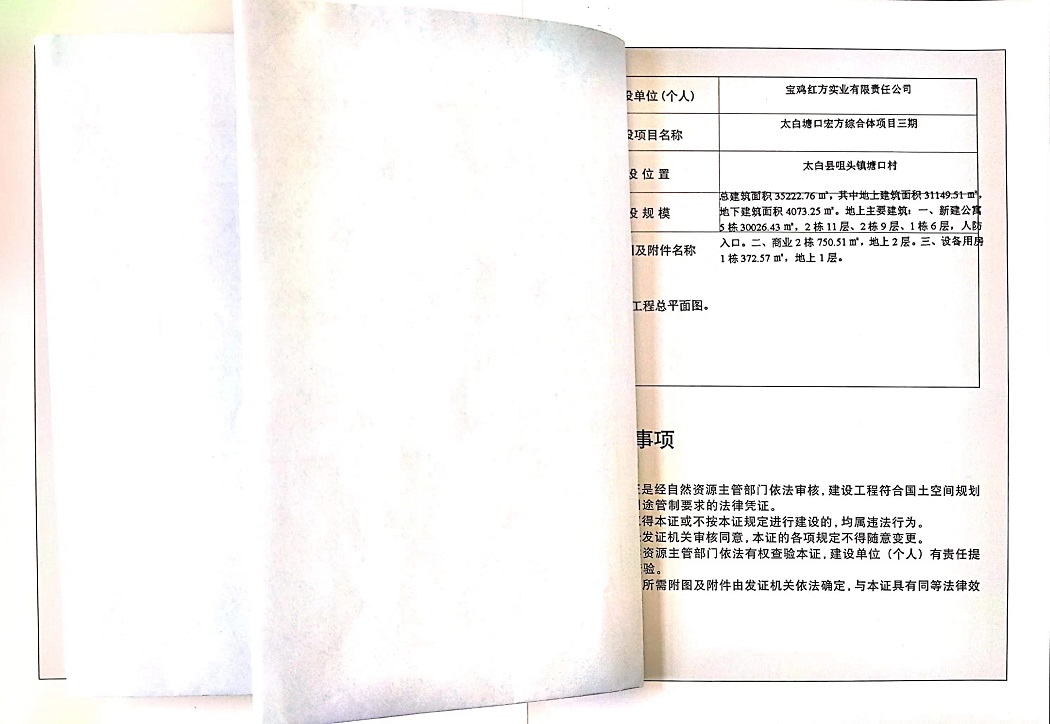 设单位(个人)
宝鸡红方实业有限责任公司
设项目名称
太白塘口宏方综合体项目三期
设 位 置
太白县咀头镇塘口村
设 规 模
总建筑面积 35222.76 ㎡，其中地上建筑面积 31149.51 ㎡，
地下建筑面积 4073.25 ㎡。地上主要建筑：一、新建公寓
5 栋 30026.43 ㎡，2 栋 11 层、2 栋 9 层、1 栋 6 层，人防
入口。二、商业 2 栋 750.51 ㎡，地上 2 层。三、设备用房
1 栋 372.57 ㎡，地上 1 层。
图及附件名称
工程总平面图。
事项
是经自然资源主管部门依法审核，建设工程符合国土空间规划
途管制要求的法律凭证。
得本证或不按本证规定进行建设的，均属违法行为。
发证机关审核同意，本证的各项规定不得随意变更。
资源主管部门依法有权查验本证，建设单位（个人）有责任提
验。
所需附图及附件由发证机关依法确定，与本证具有同等法律效